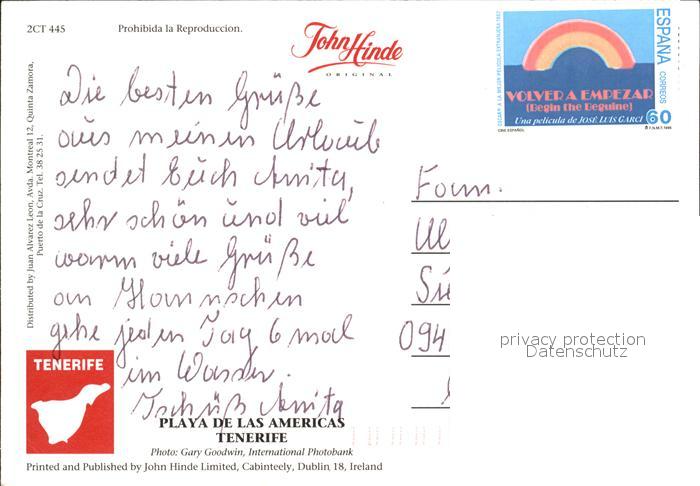 2CT 445
Prohibida la Reproduccion.
John Hinde
ORIGINAL
OSCAR A LA MEJOR PELICULA EXTRANJERA 1982
VOLVER A EMPEZAR
(Begin the Beguine)
Una película de JOSÉ LUIS GARCI
CINE ESPAÑOL
ESPAÑA
CORREOS
60
F.N.M.T. 1995
Distributed by Juan Alvarez Leon, Avda. Montreal 12, Quinta Zamora,
Puerto de la Cruz. Tel. 38 25 31.
Die besten Grüße
aus meinen Urlaub
sendet Euch Anita,
sehr schön und viel
warm viele Grüße
an Hannchen
gehe jeden Tag 6 mal
im Wasser.
Tschüß Anita
Fam.
Ul
Si
094
privacy protection
Datenschutz
TENERIFE
PLAYA DE LAS AMERICAS
TENERIFE
Photo: Gary Goodwin, International Photobank
Printed and Published by John Hinde Limited, Cabinteely, Dublin 18, Ireland